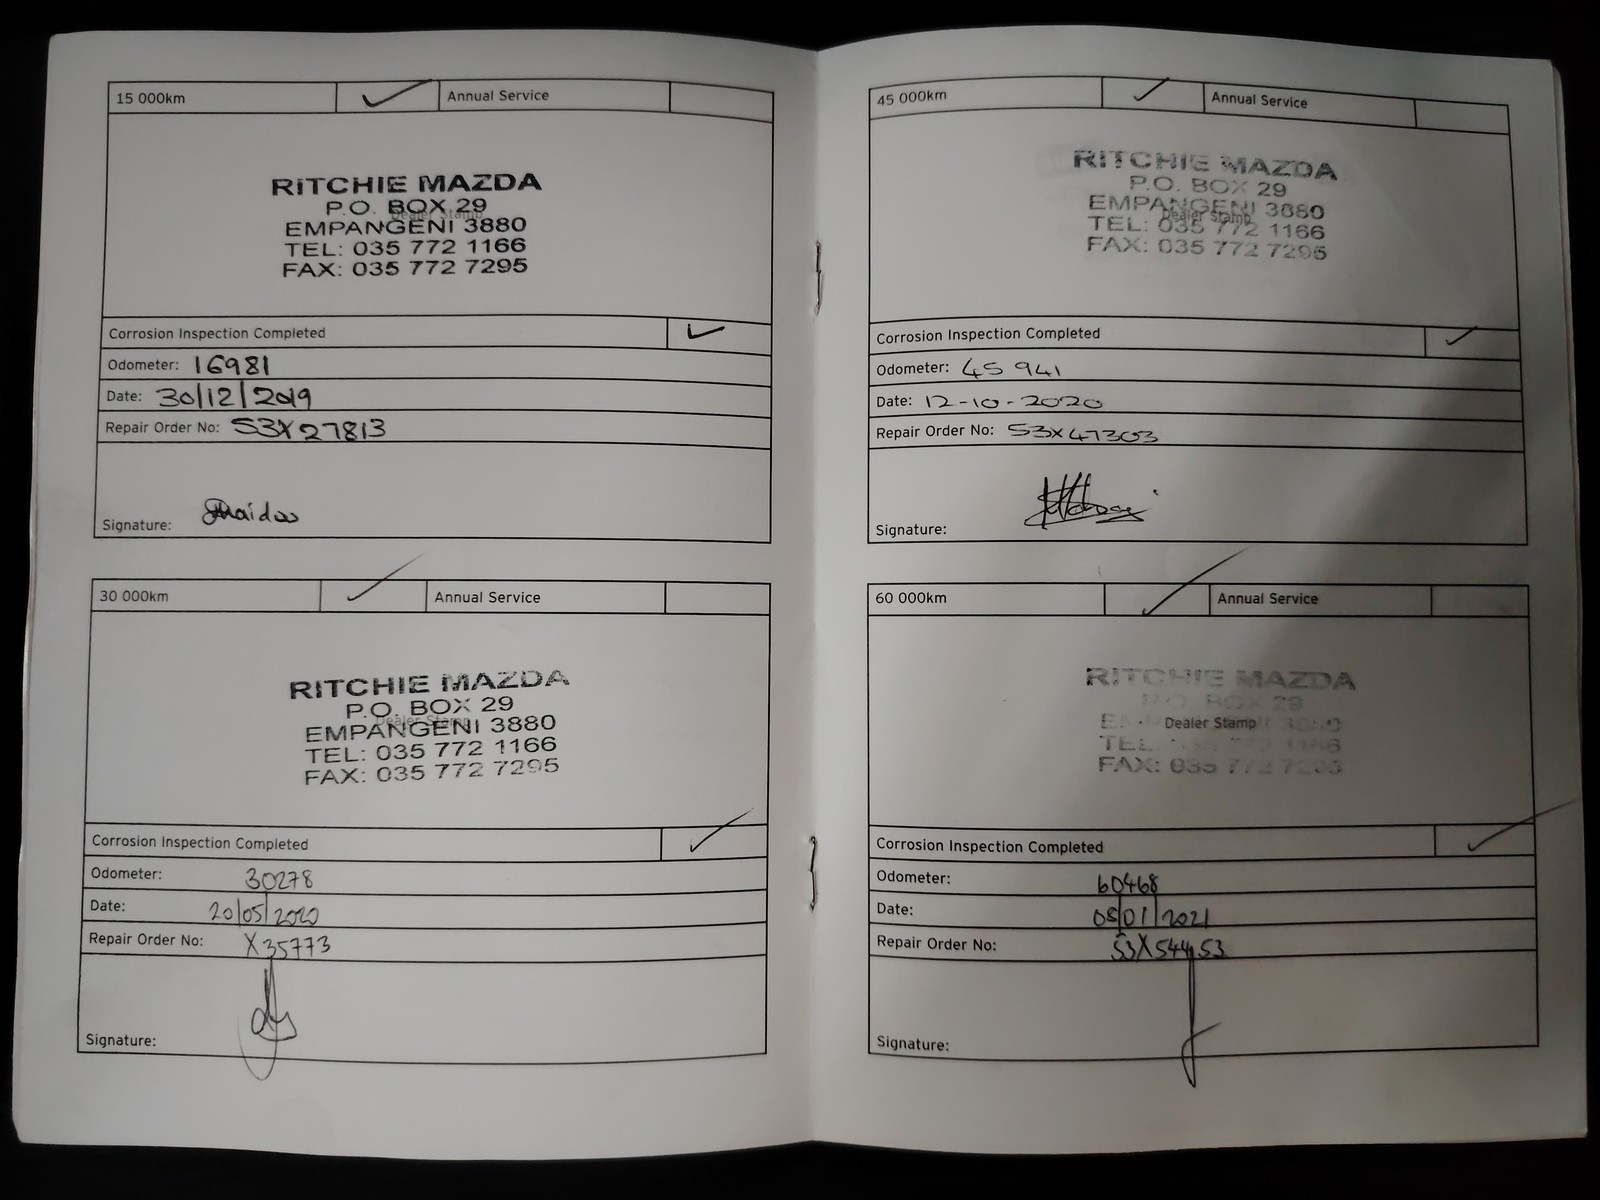 15 000km Annual Service
RITCHIE MAZDA
P.O. BOX 29
Dealer Stamp
EMPANGENI 3880
TEL: 035 772 1166
FAX: 035 772 7295
Corrosion Inspection Completed
Odometer: 16981
Date: 30/12/2019
Repair Order No: S3X27813
Signature:
30 000km Annual Service
RITCHIE MAZDA
P.O. BOX 29
Dealer Stamp
EMPANGENI 3880
TEL: 035 772 1166
FAX: 035 772 7295
Corrosion Inspection Completed
Odometer: 30278
Date: 20/05/2020
Repair Order No: X35773
Signature:
45 000km Annual Service
RITCHIE MAZDA
P.O. BOX 29
EMPANGENI 3880
Dealer Stamp
TEL: 035 772 1166
FAX: 035 772 7295
Corrosion Inspection Completed
Odometer: 45 941
Date: 12-10-2020
Repair Order No: S3X47303
Signature:
60 000km Annual Service
RITCHIE MAZDA
P.O. BOX 29
Dealer Stamp
TEL:
FAX: 035 772
Corrosion Inspection Completed
Odometer: 60468
Date: 08/01/2021
Repair Order No: S3X54453
Signature: